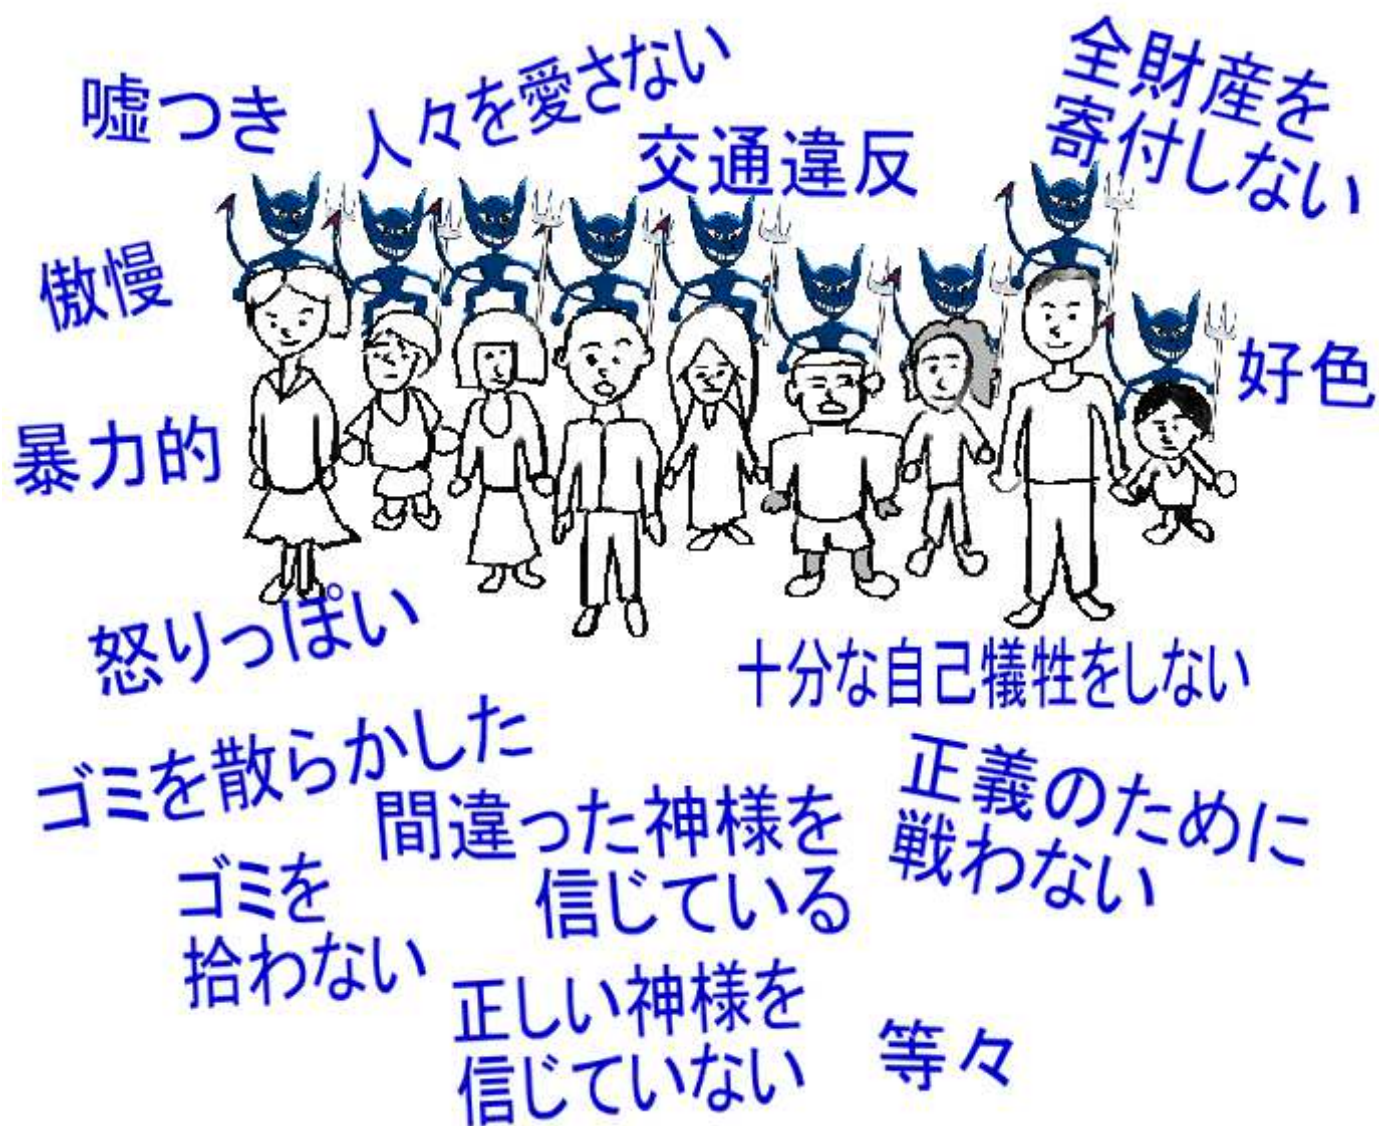 嘘つき
人々を愛さない
交通違反
全財産を
寄付しない
傲慢
好色
暴力的
怒りっぽい
十分な自己犠牲をしない
ゴミを散らかした
間違った神様を
信じている
正義のために
戦わない
ゴミを
拾わない
正しい神様を
信じていない
等々